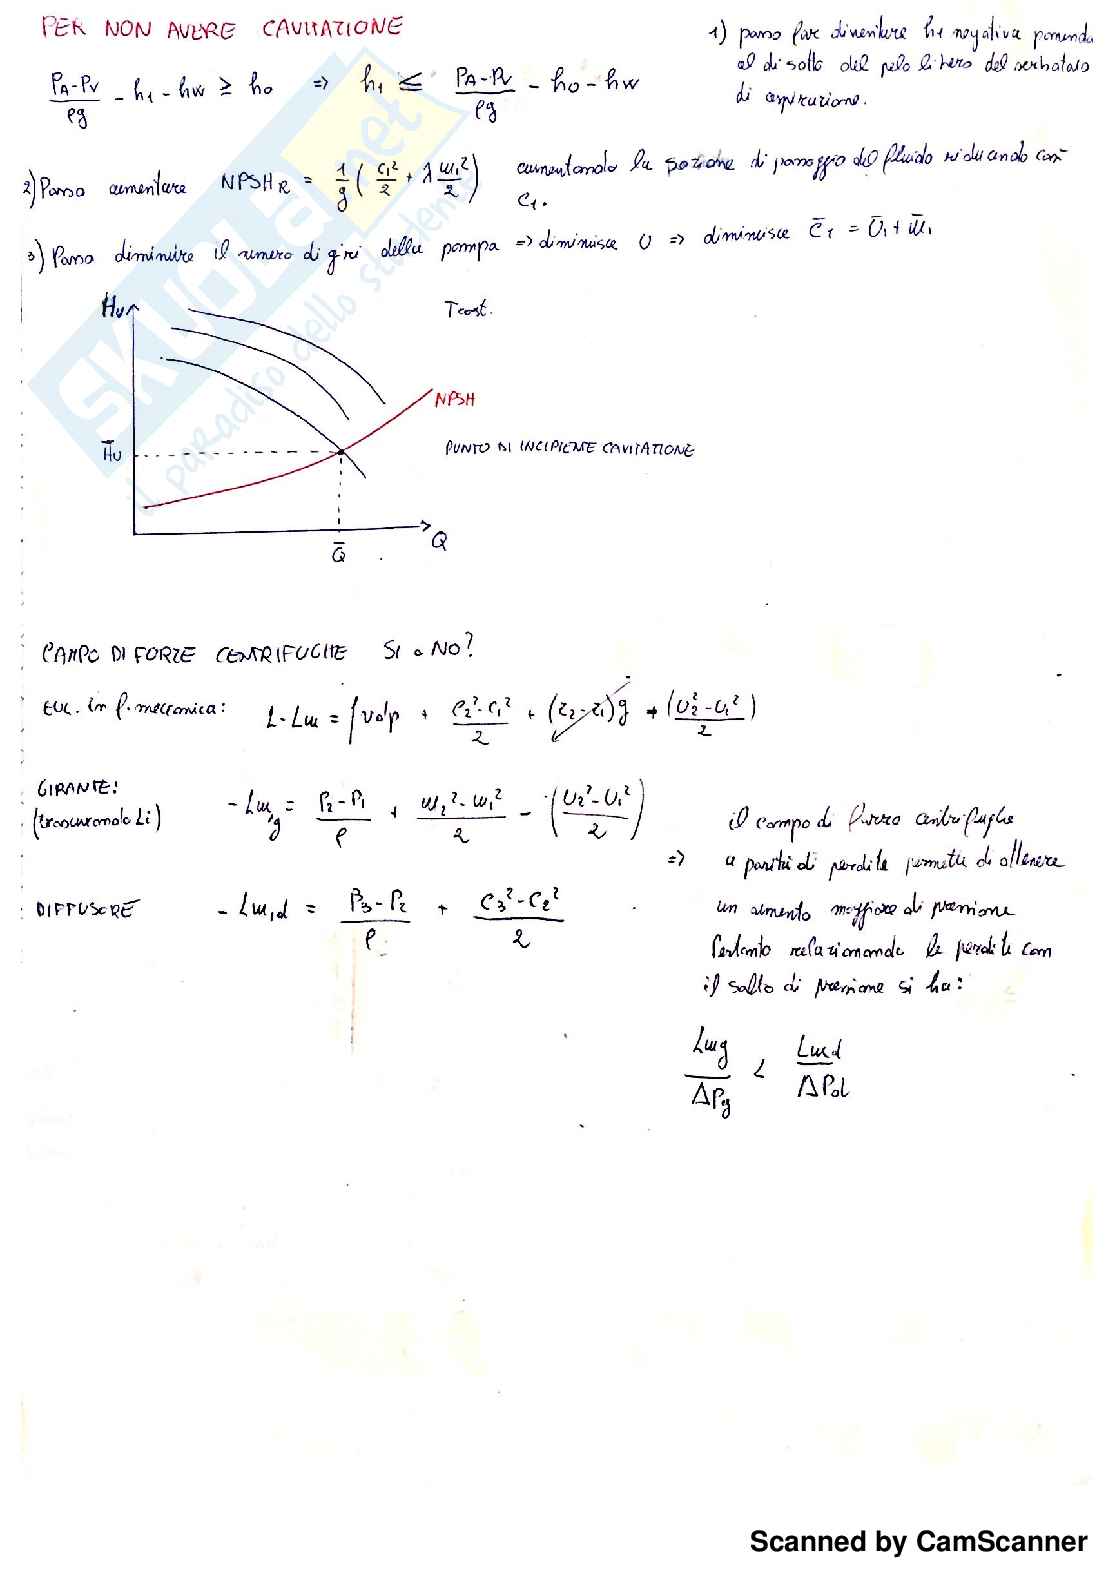 PER NON AVERE CAVITAZIONE
1) posso far diventare h1 negativa ponendo
al di sotto del pelo libero del serbatoio
di aspirazione.
(PA - PV)/ρg - h1 - hw ≥ h0 ⇒ h1 ≤ (PA - PV)/ρg - h0 - hw
2) Posso aumentare NPSHR = 1/g (c1²/2 + λ w1²/2) aumentando la sezione di passaggio del fluido riducando così
c1.
3) Posso diminuire il numero di giri della pompa => diminuisce U => diminuisce c̄1 = Ū1 + w̄1
Hu
T cost.
NPSH
H̄u
PUNTO DI INCIPIENTE CAVITAZIONE
Q
Q̄
CAMPO DI FORZE CENTRIFUGHE SI o NO?
EUL. in f. meccanica: L - Lw = ∫vdp + (c2² - c1²)/2 + (z2 - z1)g + (U2² - U1²)/2
GIRANTE:
(trascurando Li)
- Lw,g = (P2 - P1)/ρ + (w2² - w1²)/2 - (U2² - U1²)/2
DIFFUSORE - Lw,d = (P3 - P2)/ρ + (c3² - c2²)/2
=> il campo di forze centrifughe
a parità di perdite permette di ottenere
un aumento maggiore di pressione
Pertanto relazionando le perdite con
il salto di pressione si ha:
Lwg/ΔPg < Lwd/ΔPd
SKUOLA.net
il paradiso dello studente
Scanned by CamScanner